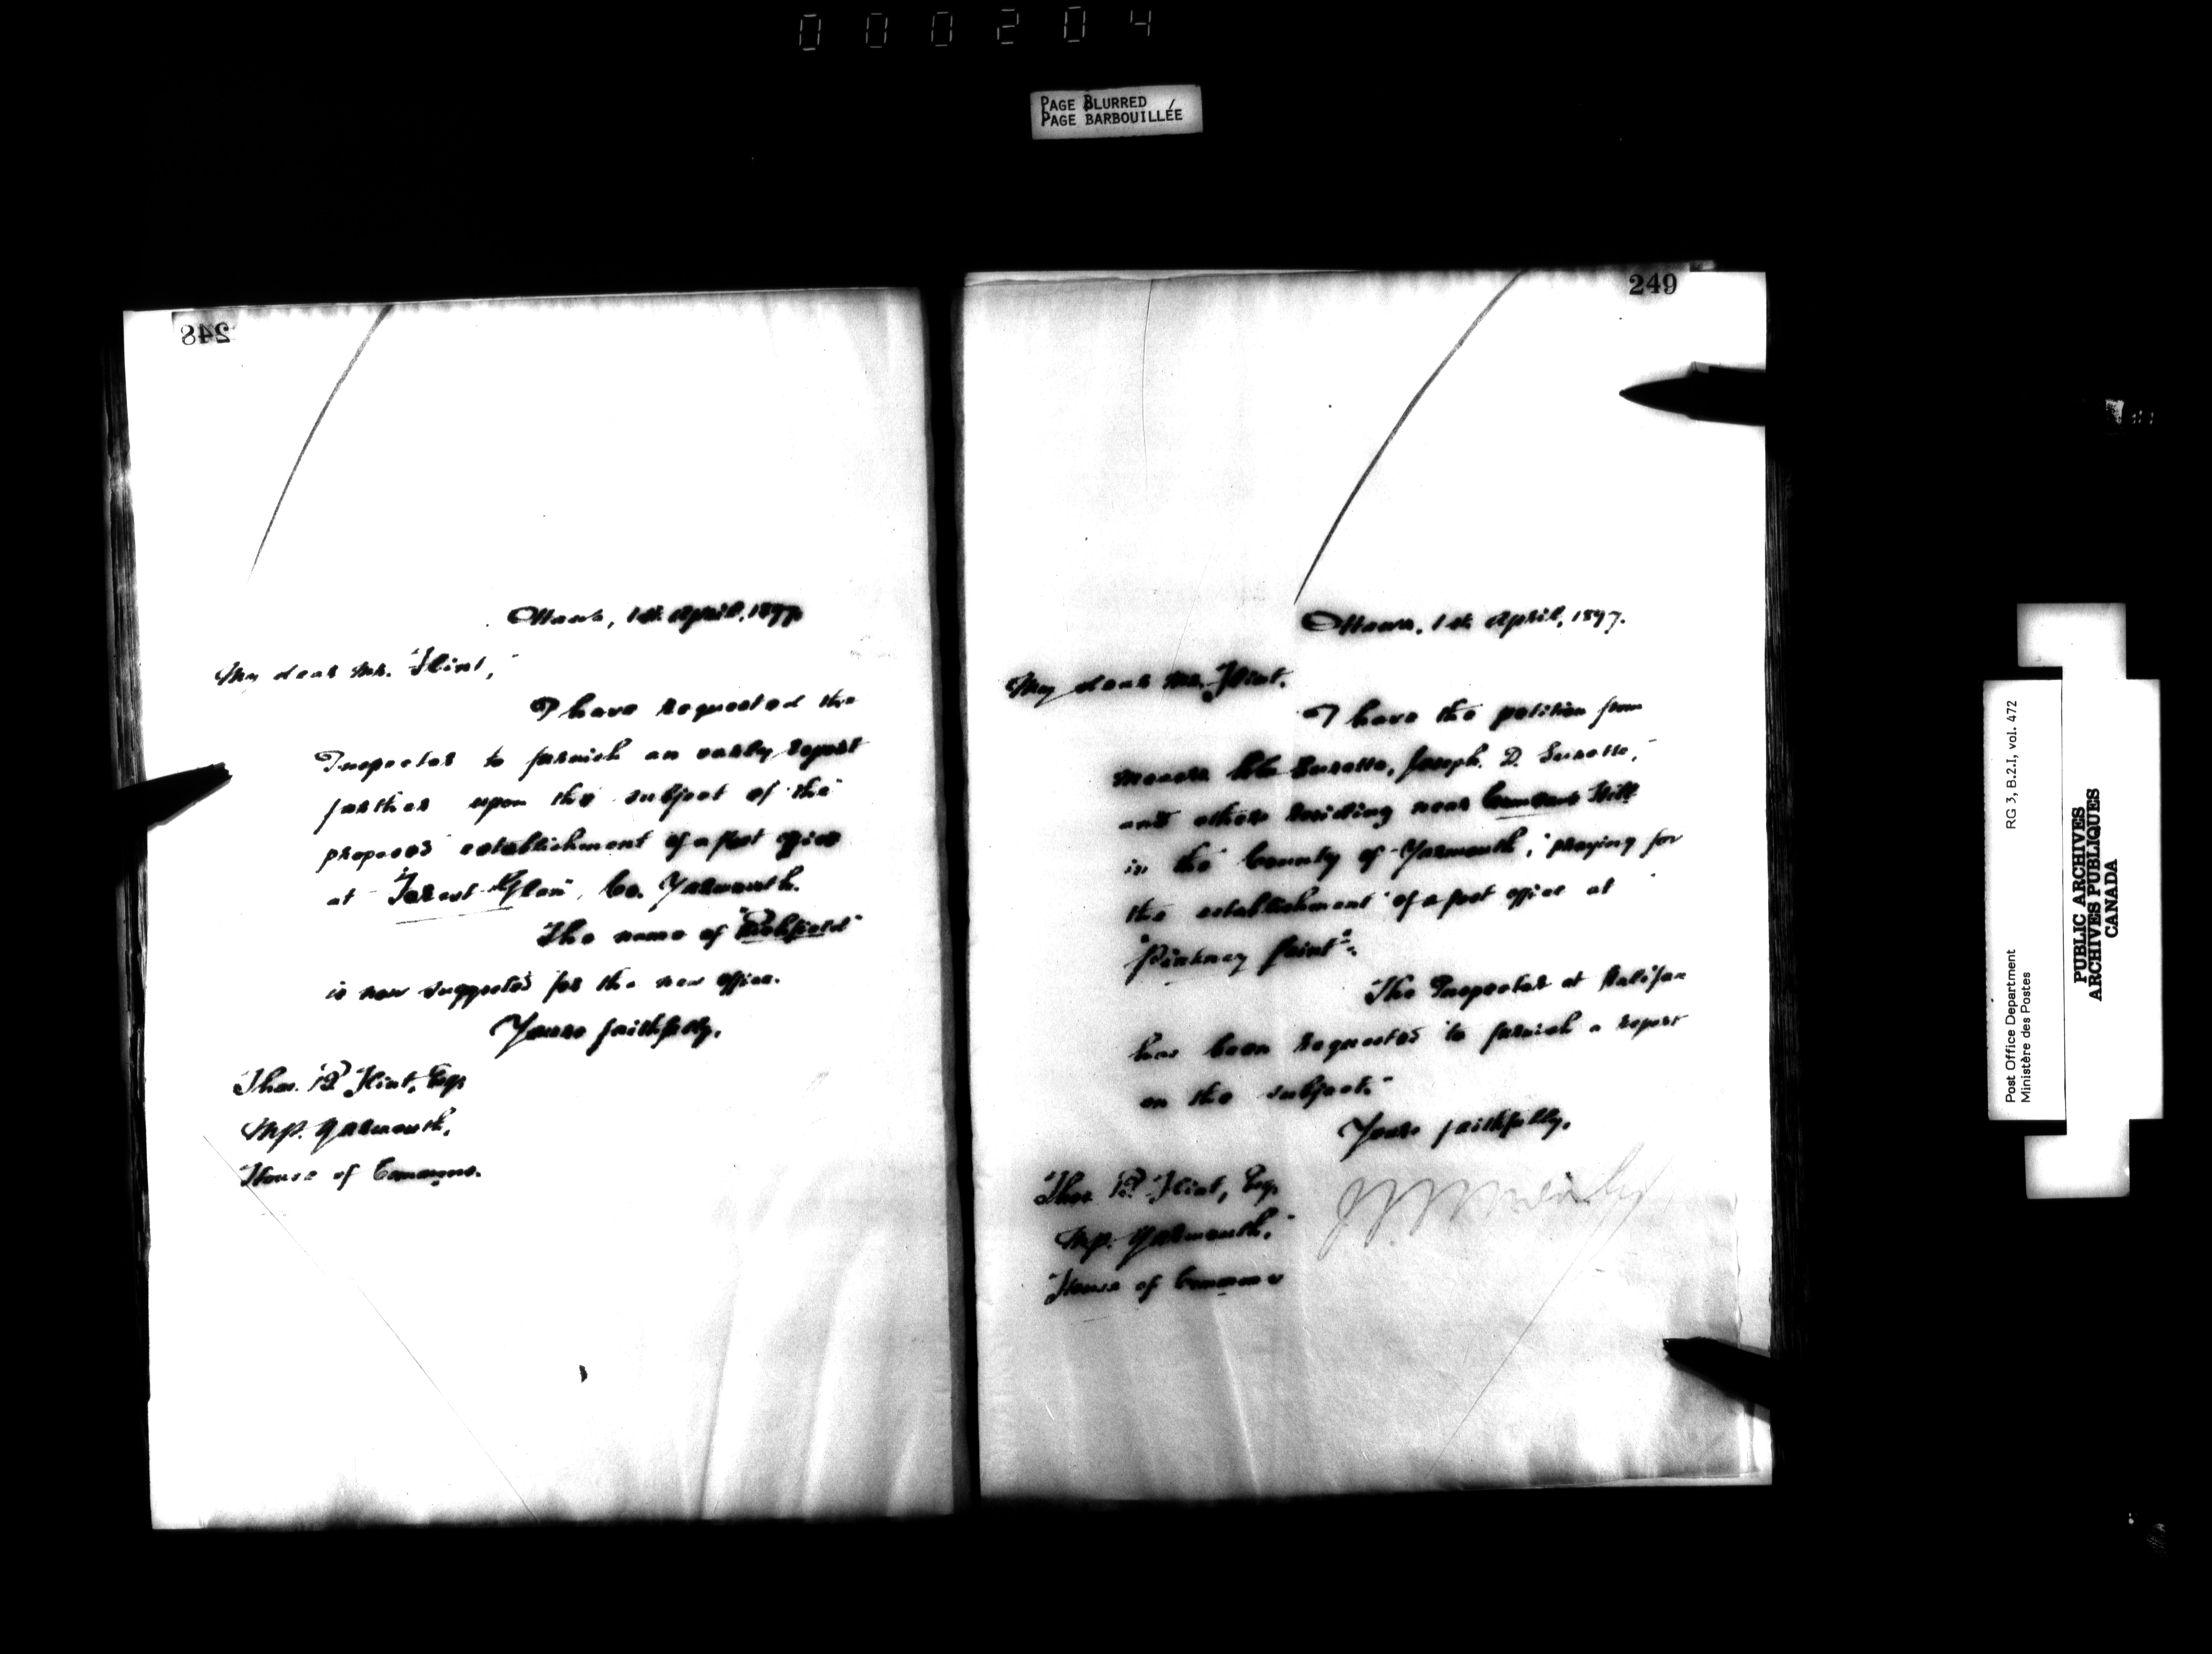 000204
PAGE BLURRED
PAGE BARBOUILLÉE
248
Ottawa, 1st April, 1897
My dear Mr. Flint,
I have requested the
Inspector to furnish an early report
further upon the subject of the
proposed establishment of a post office
at Forest Glen, Co. Yarmouth.
The name of
is now suggested for the new office.
Yours faithfully,
Thos. B. Flint, Esq.
M.P. Yarmouth,
House of Commons.
249
Ottawa, 1st April, 1897.
My dear Mr. Flint.
I have the petition from
Messrs Surette, Joseph. D. Surette,
and others residing near
in the County of Yarmouth, praying for
the establishment of a post office at
"Pinkney Point".
The Inspector at Halifax
has been requested to furnish a report
on the subject.
Yours faithfully,
Thos. B. Flint, Esq.
M.P. Yarmouth,
House of Commons
Post Office Department
Ministère des Postes
RG 3, B.2.I, vol. 472
PUBLIC ARCHIVES
ARCHIVES PUBLIQUES
CANADA